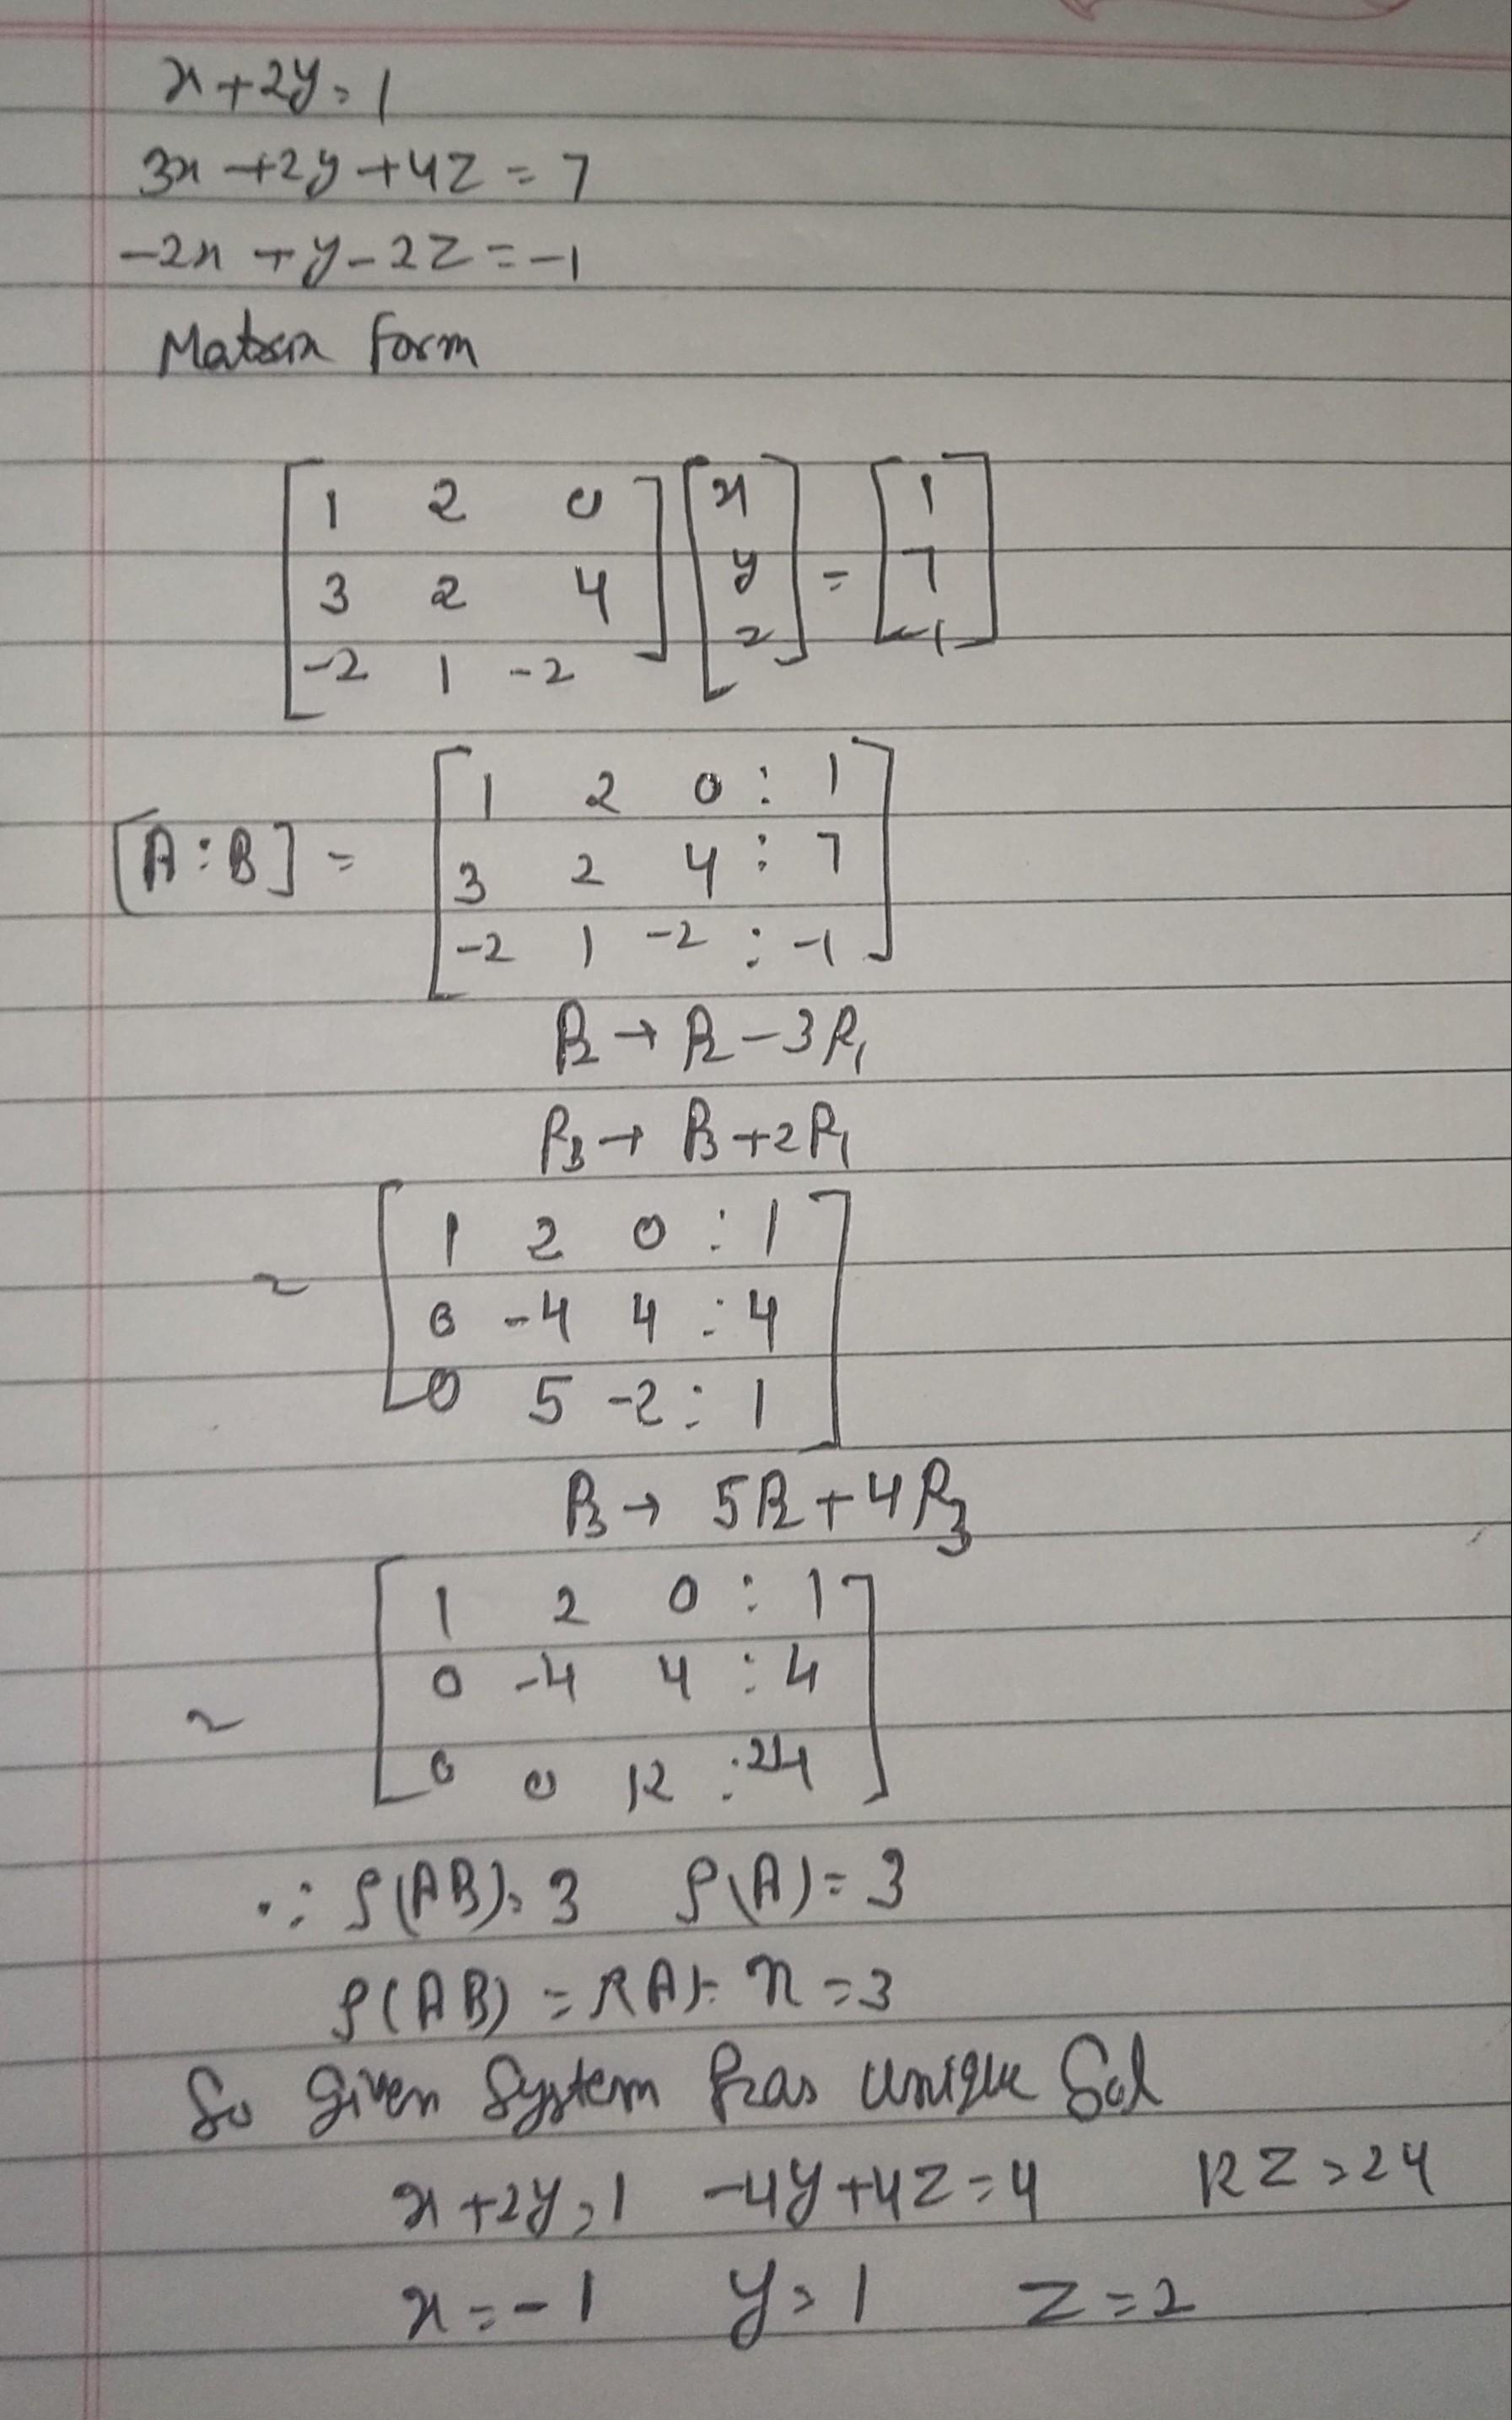 x+2y=1
3x+2y+4z=7
-2x+y-2z=-1
Matrix form
[1 2 0] [x] = [1]
[3 2 4] [y] [7]
[-2 1 -2] [z] [-1]
[A:B] = [1 2 0 : 1]
[3 2 4 : 7]
[-2 1 -2 : -1]
R2 → R2-3R1
R3 → R3+2R1
~ [1 2 0 : 1]
[0 -4 4 : 4]
[0 5 -2 : 1]
R3 → 5R2+4R3
~ [1 2 0 : 1]
[0 -4 4 : 4]
[0 0 12 : 24]
∵ ρ(AB)=3 ρ(A)=3
ρ(AB) = ρ(A)= n=3
So given System has unique Sol
x+2y=1 -4y+4z=4 12z=24
x=-1 y=1 z=2